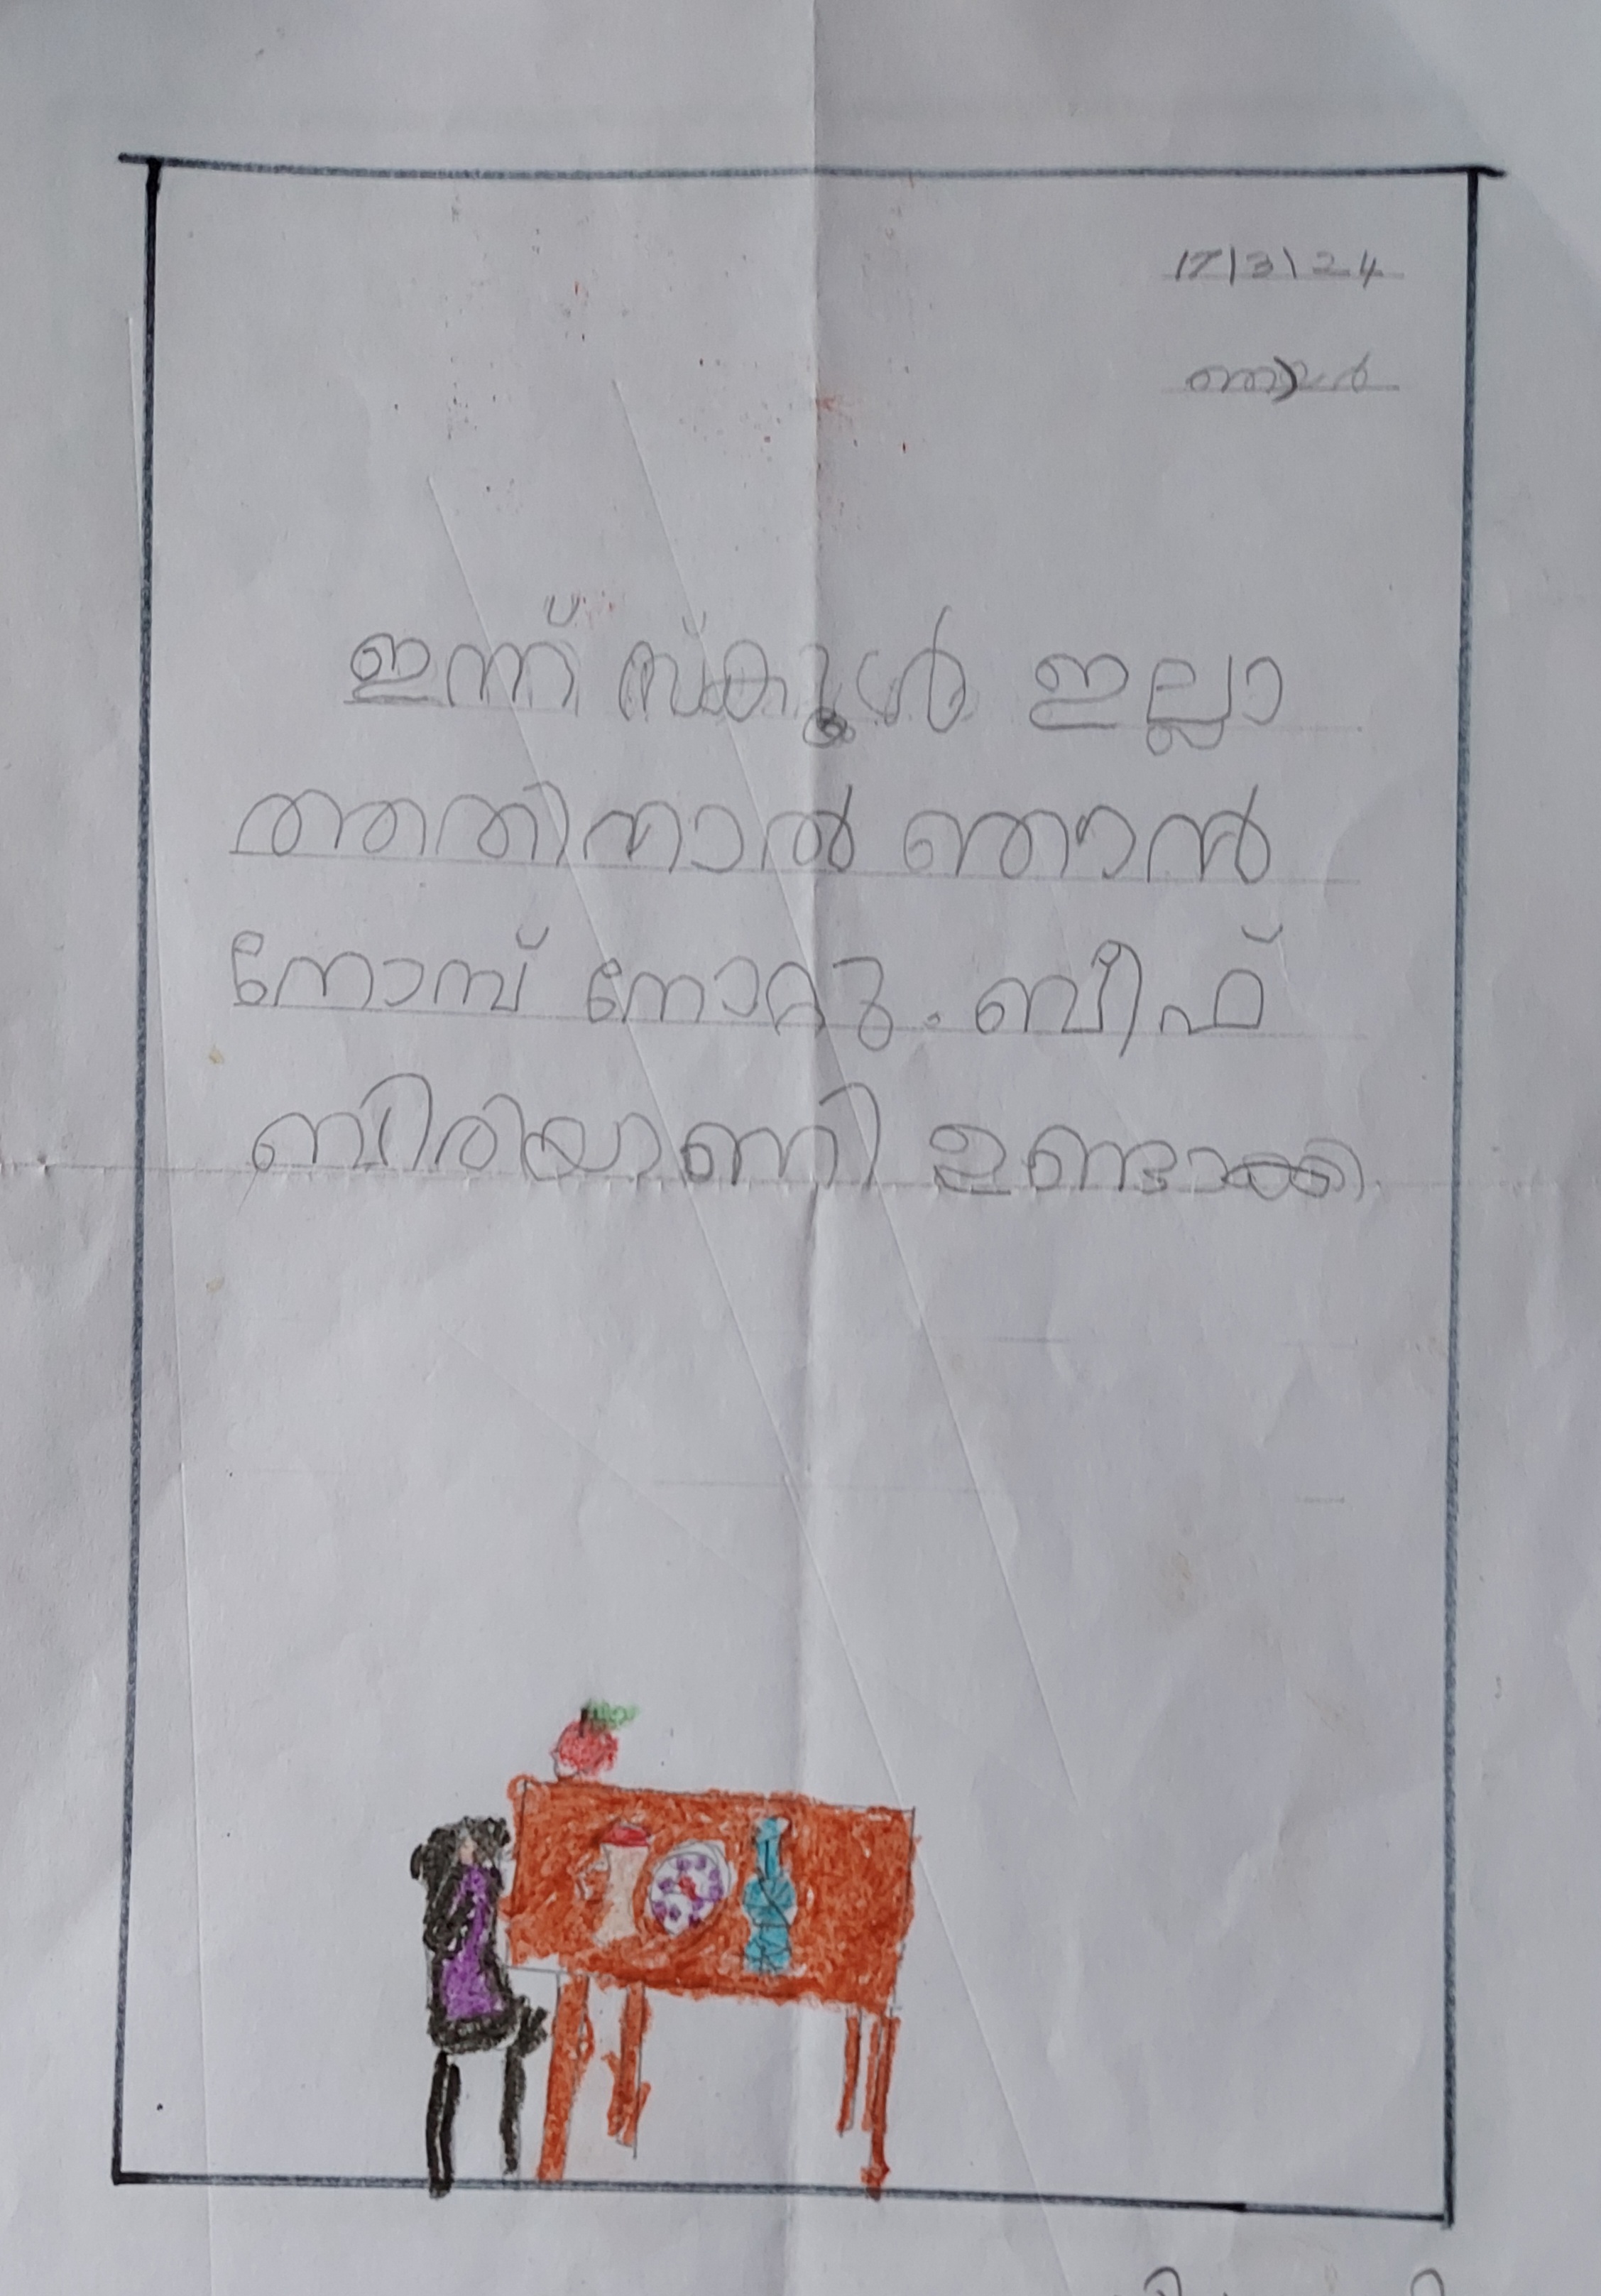 17/3/24
ഞായർ
ഇന്ന് സ്കൂൾ ഇല്ലാ
ത്തതിനാൽ ഞാൻ
നോമ്പ് നോറ്റു. ബീഫ്
ബിരിയാണി ഉണ്ടാക്കി.